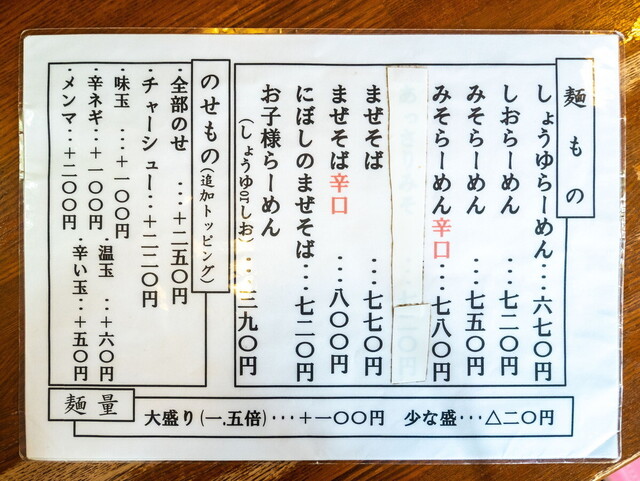 麺もの
しょうゆらーめん…六七〇円
しおらーめん …七二〇円
みそらーめん …七五〇円
みそらーめん辛口…七八〇円
あっさりみそ …七二〇円
まぜそば …七七〇円
まぜそば辛口 …八〇〇円
にぼしのまぜそば…七二〇円
お子様らーめん
(しょうゆorしお)…三九〇円
のせもの(追加トッピング)
・全部のせ …+二五〇円
・チャーシュー…+二二〇円
・味玉 …+一〇〇円
・辛ネギ…+一〇〇円
・メンマ…+二〇〇円
・温玉 …+六〇円
・辛い玉…+五〇円
麺量
大盛り(一.五倍)…+一〇〇円 少な盛…△二〇円